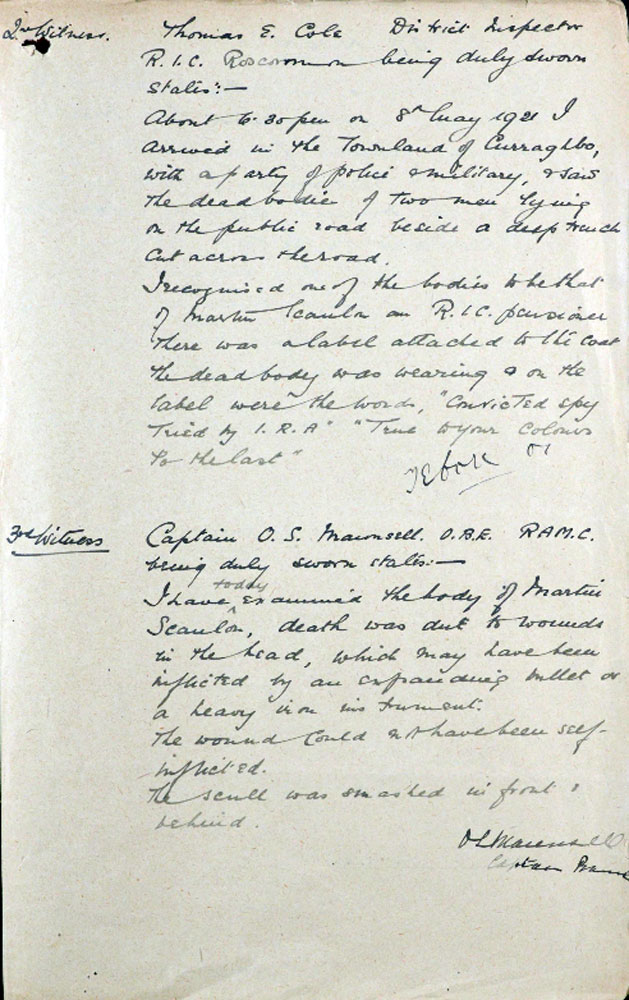 2nd Witness. Thomas E. Cole District Inspector
R.I.C. Roscommon being duly sworn
states:—
About 6.30 pm on 8th May 1921 I
arrived in the Townland of Curraghbo,
with a party of police & military, & saw
the dead bodies of two men lying
on the public road beside a deep trench
cut across the road.
I recognised one of the bodies to be that
of Martin Scanlon an R.I.C. pensioner
There was a label attached to the coat
the dead body was wearing & on the
label were the words, "Convicted spy
Tried by I.R.A" "True to your Colours
to the last"
TECole DI
3rd Witness Captain O.S. Maunsell. O.B.E. RAMC.
being duly sworn states:—
today
I have ^ examined the body of Martin
Scanlon, death was due to wounds
in the head, which may have been
inflicted by an expanding bullet or
a heavy iron instrument.
The wound could not have been self-
inflicted.
The scull was smashed in front &
behind.
OSMaunsell
Captain Ramc